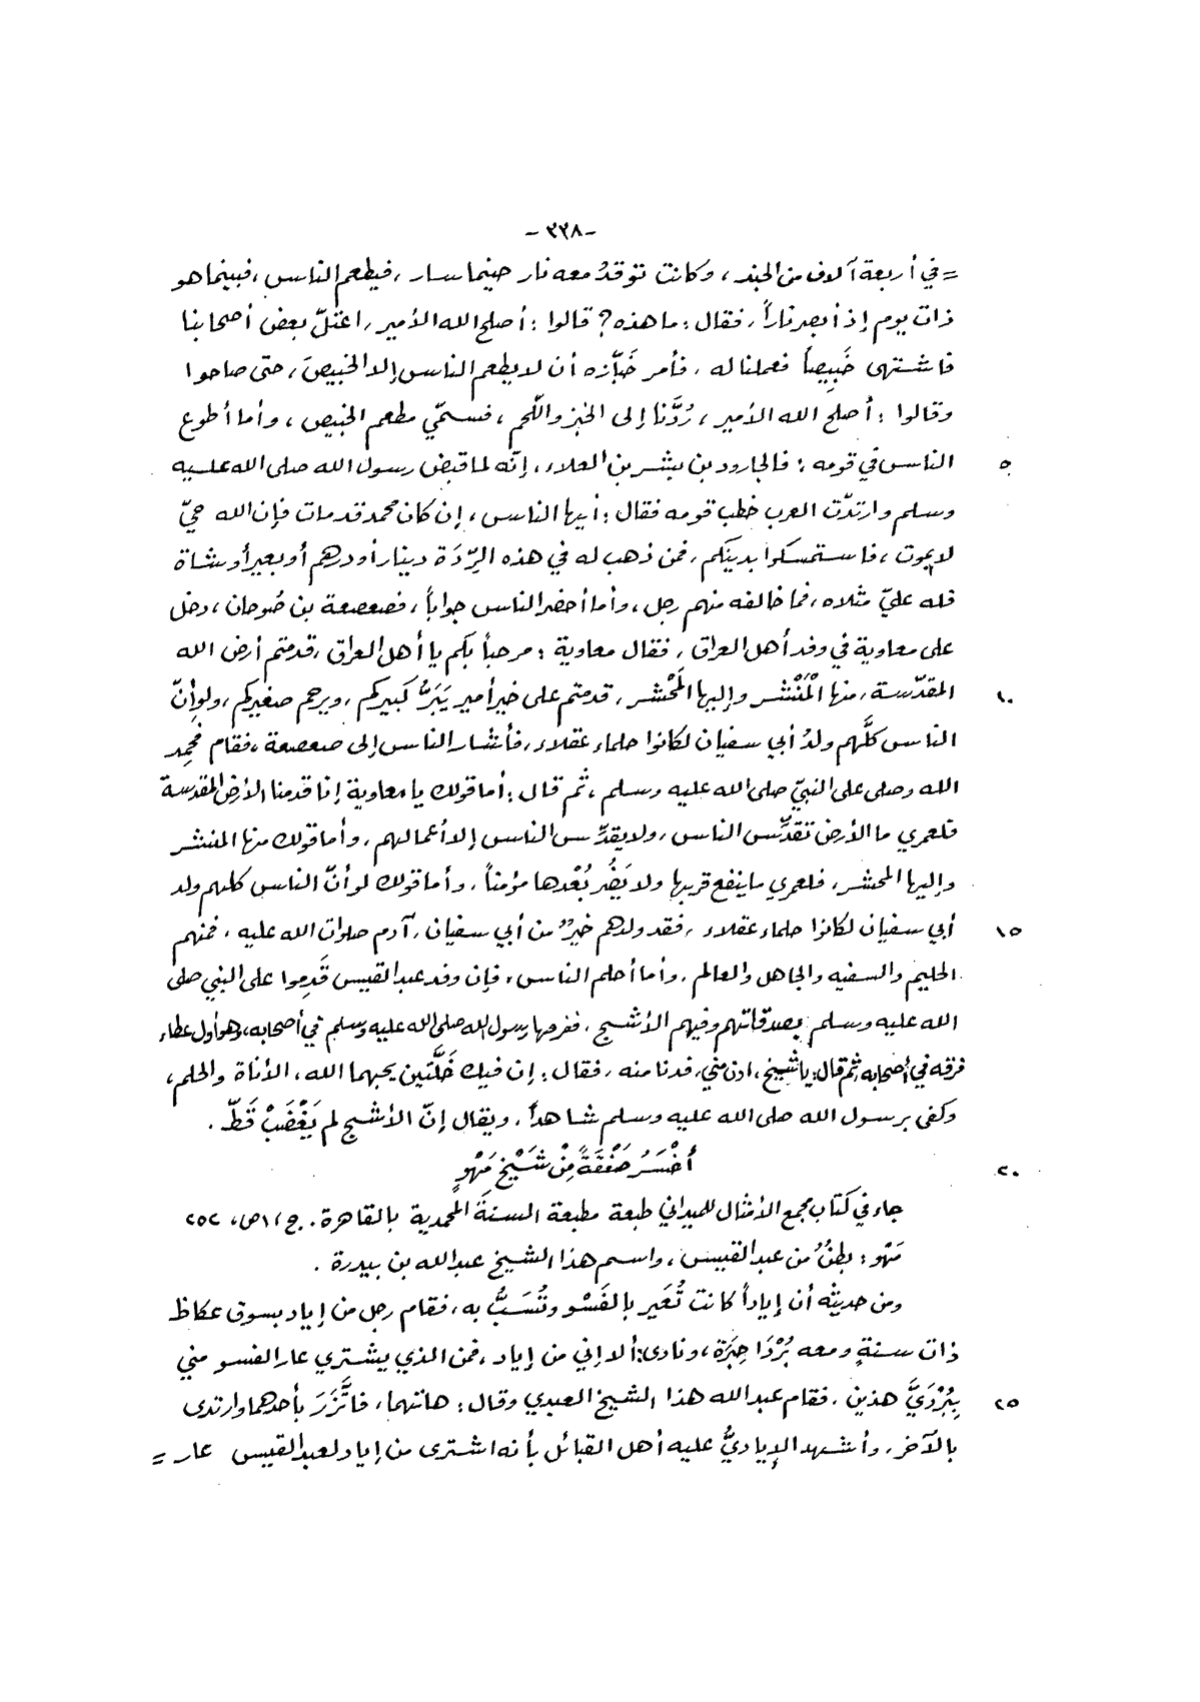 -٣٣٨-
= في أربعة آلاف من الجند، وكانت توقدُ معه نار حيثما سار، فيطعم الناس، فبينما هو
ذات يوم إذ أبصر ناراً، فقال: ما هذه؟ قالوا: أصلح الله الأمير، اعتلّ بعض أصحابنا
فاشتهى خَبِيصاً فعملنا له، فأمر خَبّازه أن لا يطعم الناس إلا الخبيصَ، حتى صاحوا
وقالوا: أصلح الله الأمير، رُدَّنا إلى الخبز واللّحم، فسمّي مطعم الخبيص، وأما أطوع
٥ الناس في قومه: فالجارود بن بشر بن العلاء، إنّه لما قبض رسول الله صلى الله عليه
وسلم وارتدّت العرب خطب قومه فقال: أيها الناس، إن كان محمد قد مات فإن الله حيّ
لا يموت، فاستمسكوا بدينكم، فمن ذهب له في هذه الرِّدَة دينار أو درهم أو بعير أو شاة
فله عليّ مثلاه، فما خالفه منهم رجل، وأما أحضر الناس جواباً، فصعصعة بن صُوحان، دخل
على معاوية في وفد أهل العراق، فقال معاوية: مرحباً بكم يا أهل العراق، قدمتم أرض الله
١٠ المقدّسة، منها الْمَنْشر وإليها الَمحْشر، قدمتم على خير أمير يَبَرُّ كبيركم، ويرحم صغيركم، ولو إنّ
الناس كلَّهم ولدُ أبي سفيان لكانوا حلماء عقلاء، فأشار الناس إلى صعصعة، فقام فحمِد
الله وصلى على النبيّ صلى الله عليه وسلم، ثم قال: أما قولك يا معاوية إنا قدمنا الأرض المقدسة
فلعمري ما الأرض تقدِّس الناس، ولا يقدِّس الناس إلا أعمالهم، وأما قولك منها المنشر
وإليها المحشر، فلعمري ما ينفع قربها ولا يَضُر بُعْدها مؤمناً، وأما قولك لو أنّ الناس كلهم ولد
١٥ أبي سفيان لكانوا حلماء عقلاء، فقد ولدهم خيرٌ من أبي سفيان، آدم صلوات الله عليه، فمنهم
الحليم والسفيه والجاهل والعالم، وأما أحلم الناس، فإن وفد عبد القيس قَدِموا على النبي صلى
الله عليه وسلم بصدقاتهم وفيهم الأشبح، ففرقها رسول الله صلى الله عليه وسلم في أصحابه، وهو أول عطاء
فرّقه في أصحابه، ثم قال: يا شيخ، ادن مني، فدنا منه، فقال: إن فيك خَلَّتين يحبهما الله، الأناة والحلم،
وكفى برسول الله صلى الله عليه وسلم شاهداً، ويقال إنّ الأشبح لم يَغْضَبْ قَطّ.
٢٠ أَخْسَرُ صَفْقَةً مِنْ شَيْخِ مَهْوٍ
جاء في كتاب مجمع الأمثال للميداني طبعة مطبعة السنة المحمدية بالقاهرة. ج، ١ ص، ٢٥٢
مَهْو: بطنٌ من عبد القيس، واسم هذا الشيخ عبد الله بن بيدرة.
ومن حديثه أن إياداً كانت تُعَير بالفَسْو وتُسَبُّ به، فقام رجل من إياد بسوق عكاظ
ذات سنةٍ ومعه بُرْدَا حِبَرَة، ونادى: ألا إني من إياد، فمن الذي يشتري عار الفسو مني
٢٥ بِبُرْدَيَّ هذين، فقام عبد الله هذا الشيخ العبدي وقال: هاتهما، فاتَّزَرَ بأحدهما وارتدى
بالآخر، وأشهد الإياديُّ عليه أهل القبائل بأنه اشترى من إياد لعبد القيس عار =